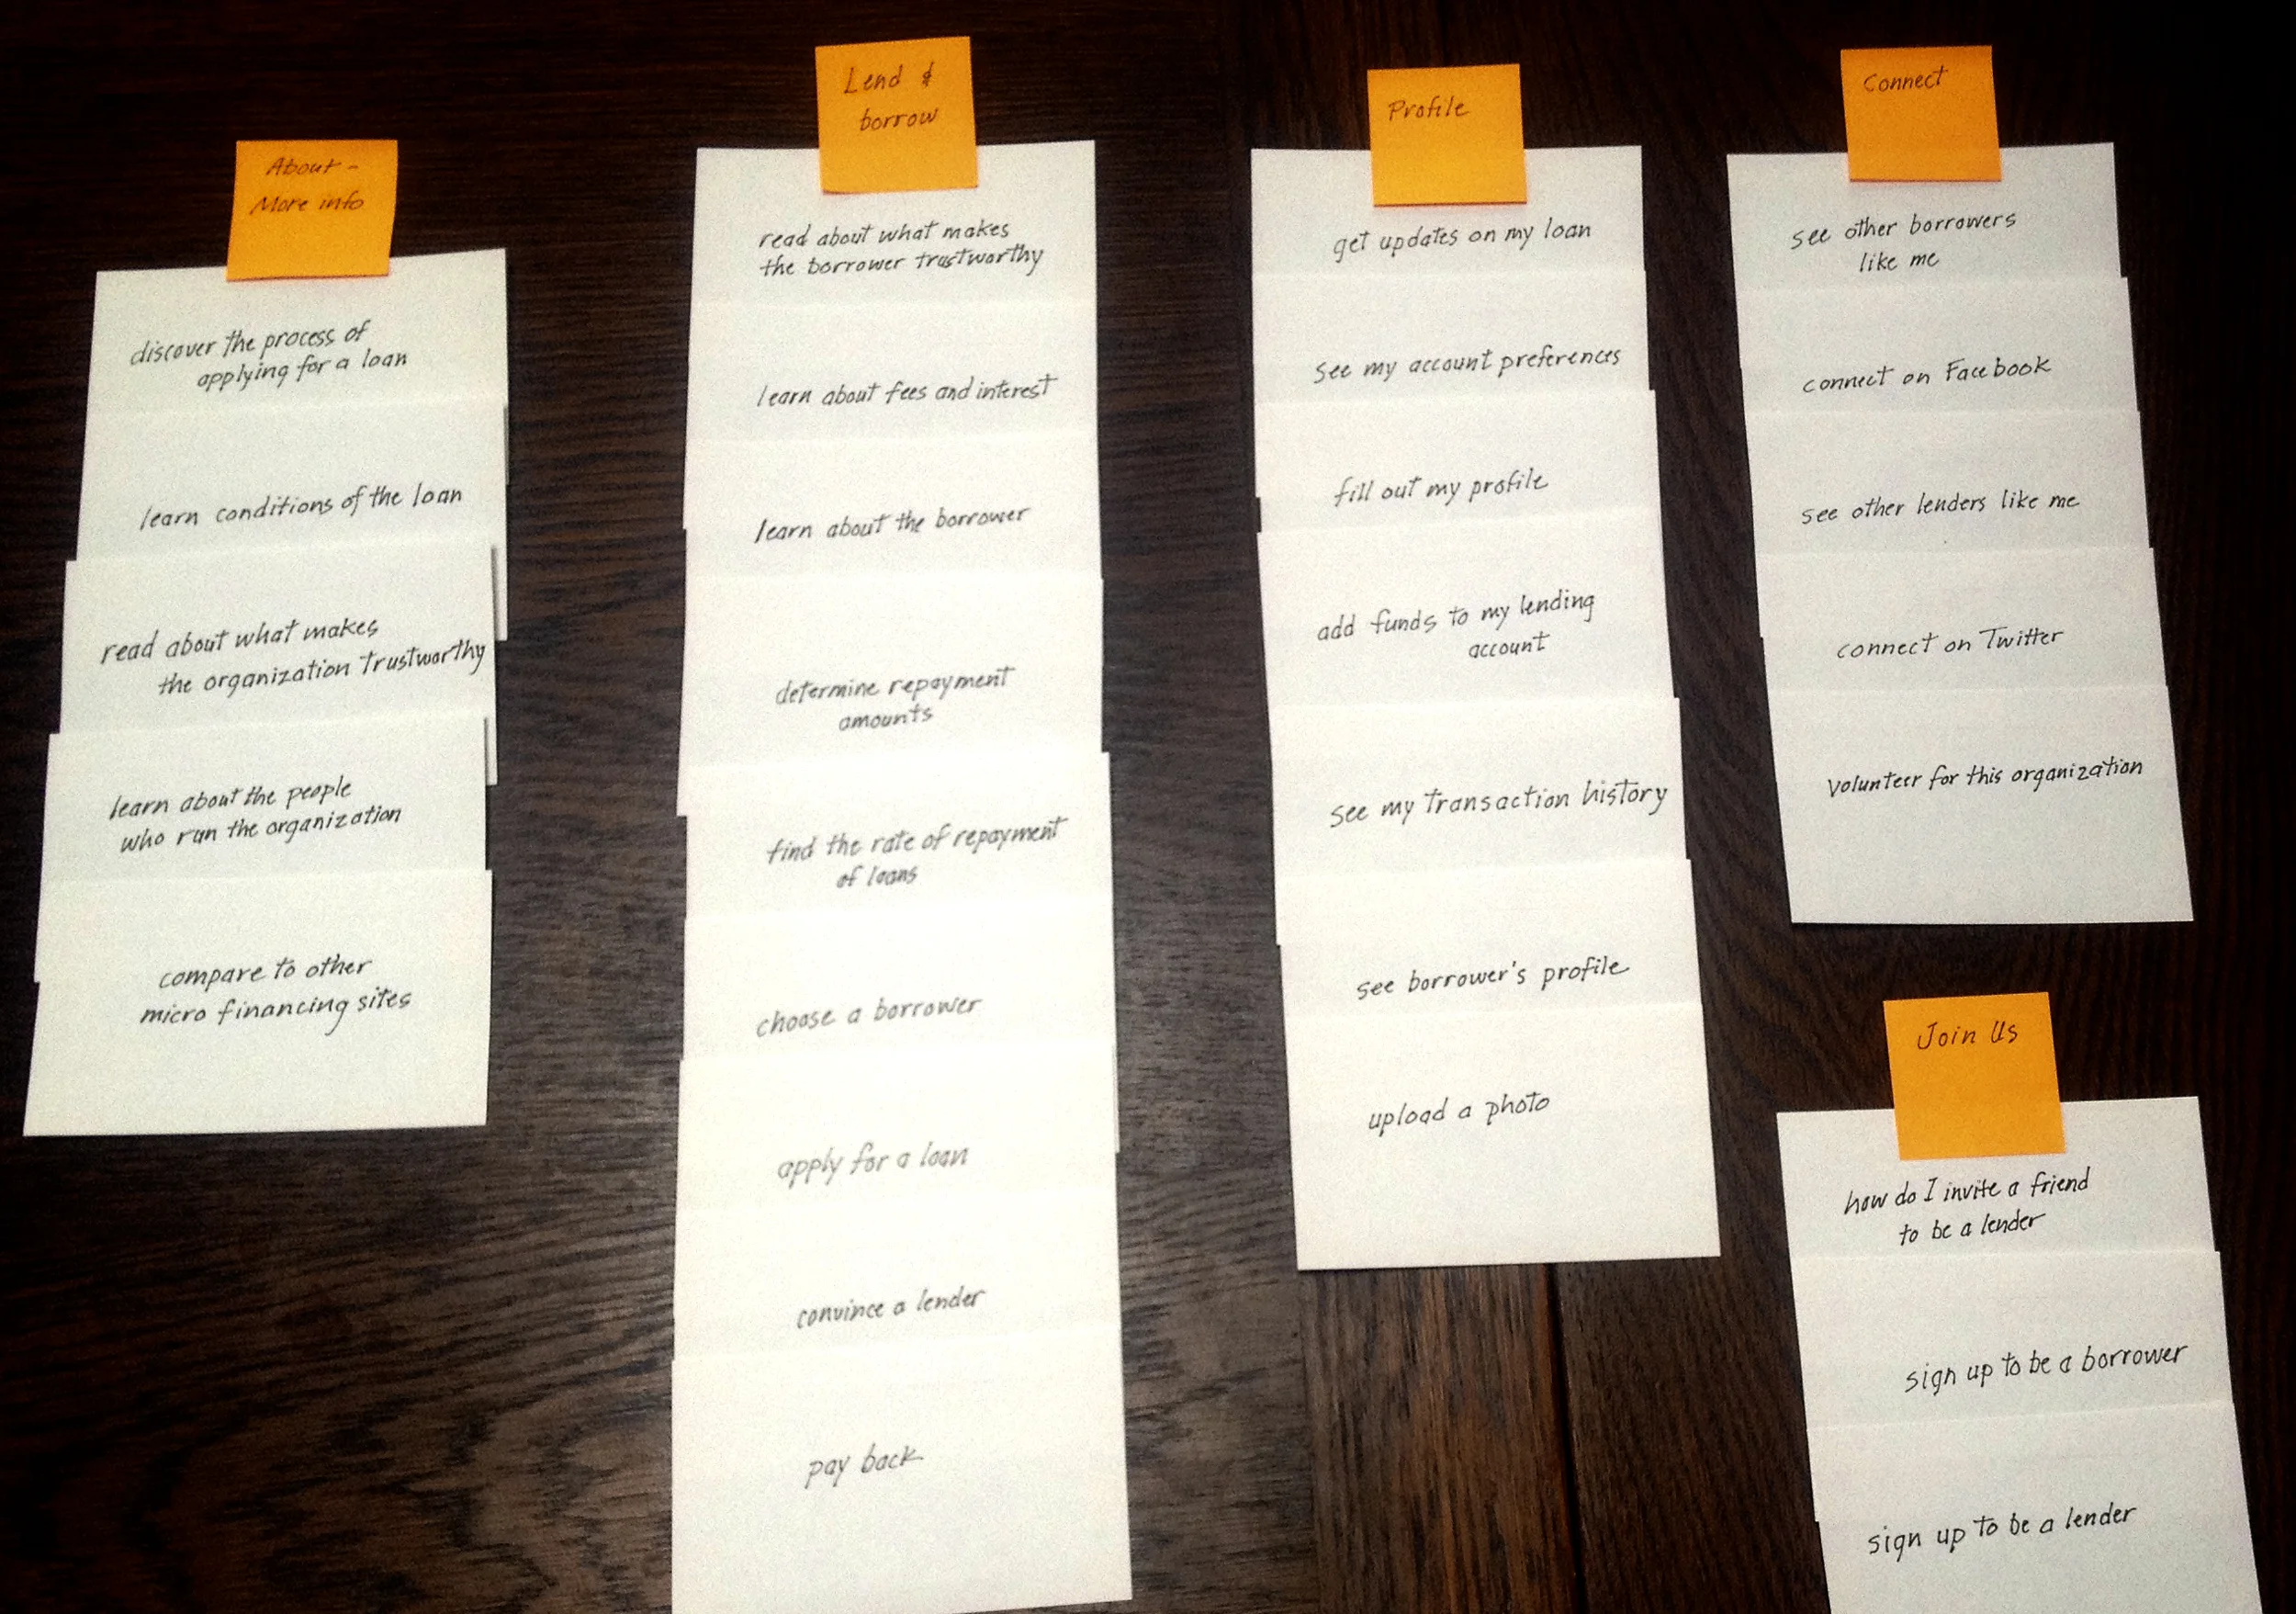 About -
More info
discover the process of
applying for a loan
learn conditions of the loan
read about what makes
the organization trustworthy
learn about the people
who run the organization
compare to other
micro financing sites
Lend &
borrow
read about what makes
the borrower trustworthy
learn about fees and interest
learn about the borrower
determine repayment
amounts
find the rate of repayment
of loans
choose a borrower
apply for a loan
convince a lender
pay back
Profile
get updates on my loan
see my account preferences
fill out my profile
add funds to my lending
account
see my transaction history
see borrower's profile
upload a photo
Connect
see other borrowers
like me
connect on Facebook
see other lenders like me
connect on Twitter
volunteer for this organization
Join Us
how do I invite a friend
to be a lender
sign up to be a borrower
sign up to be a lender